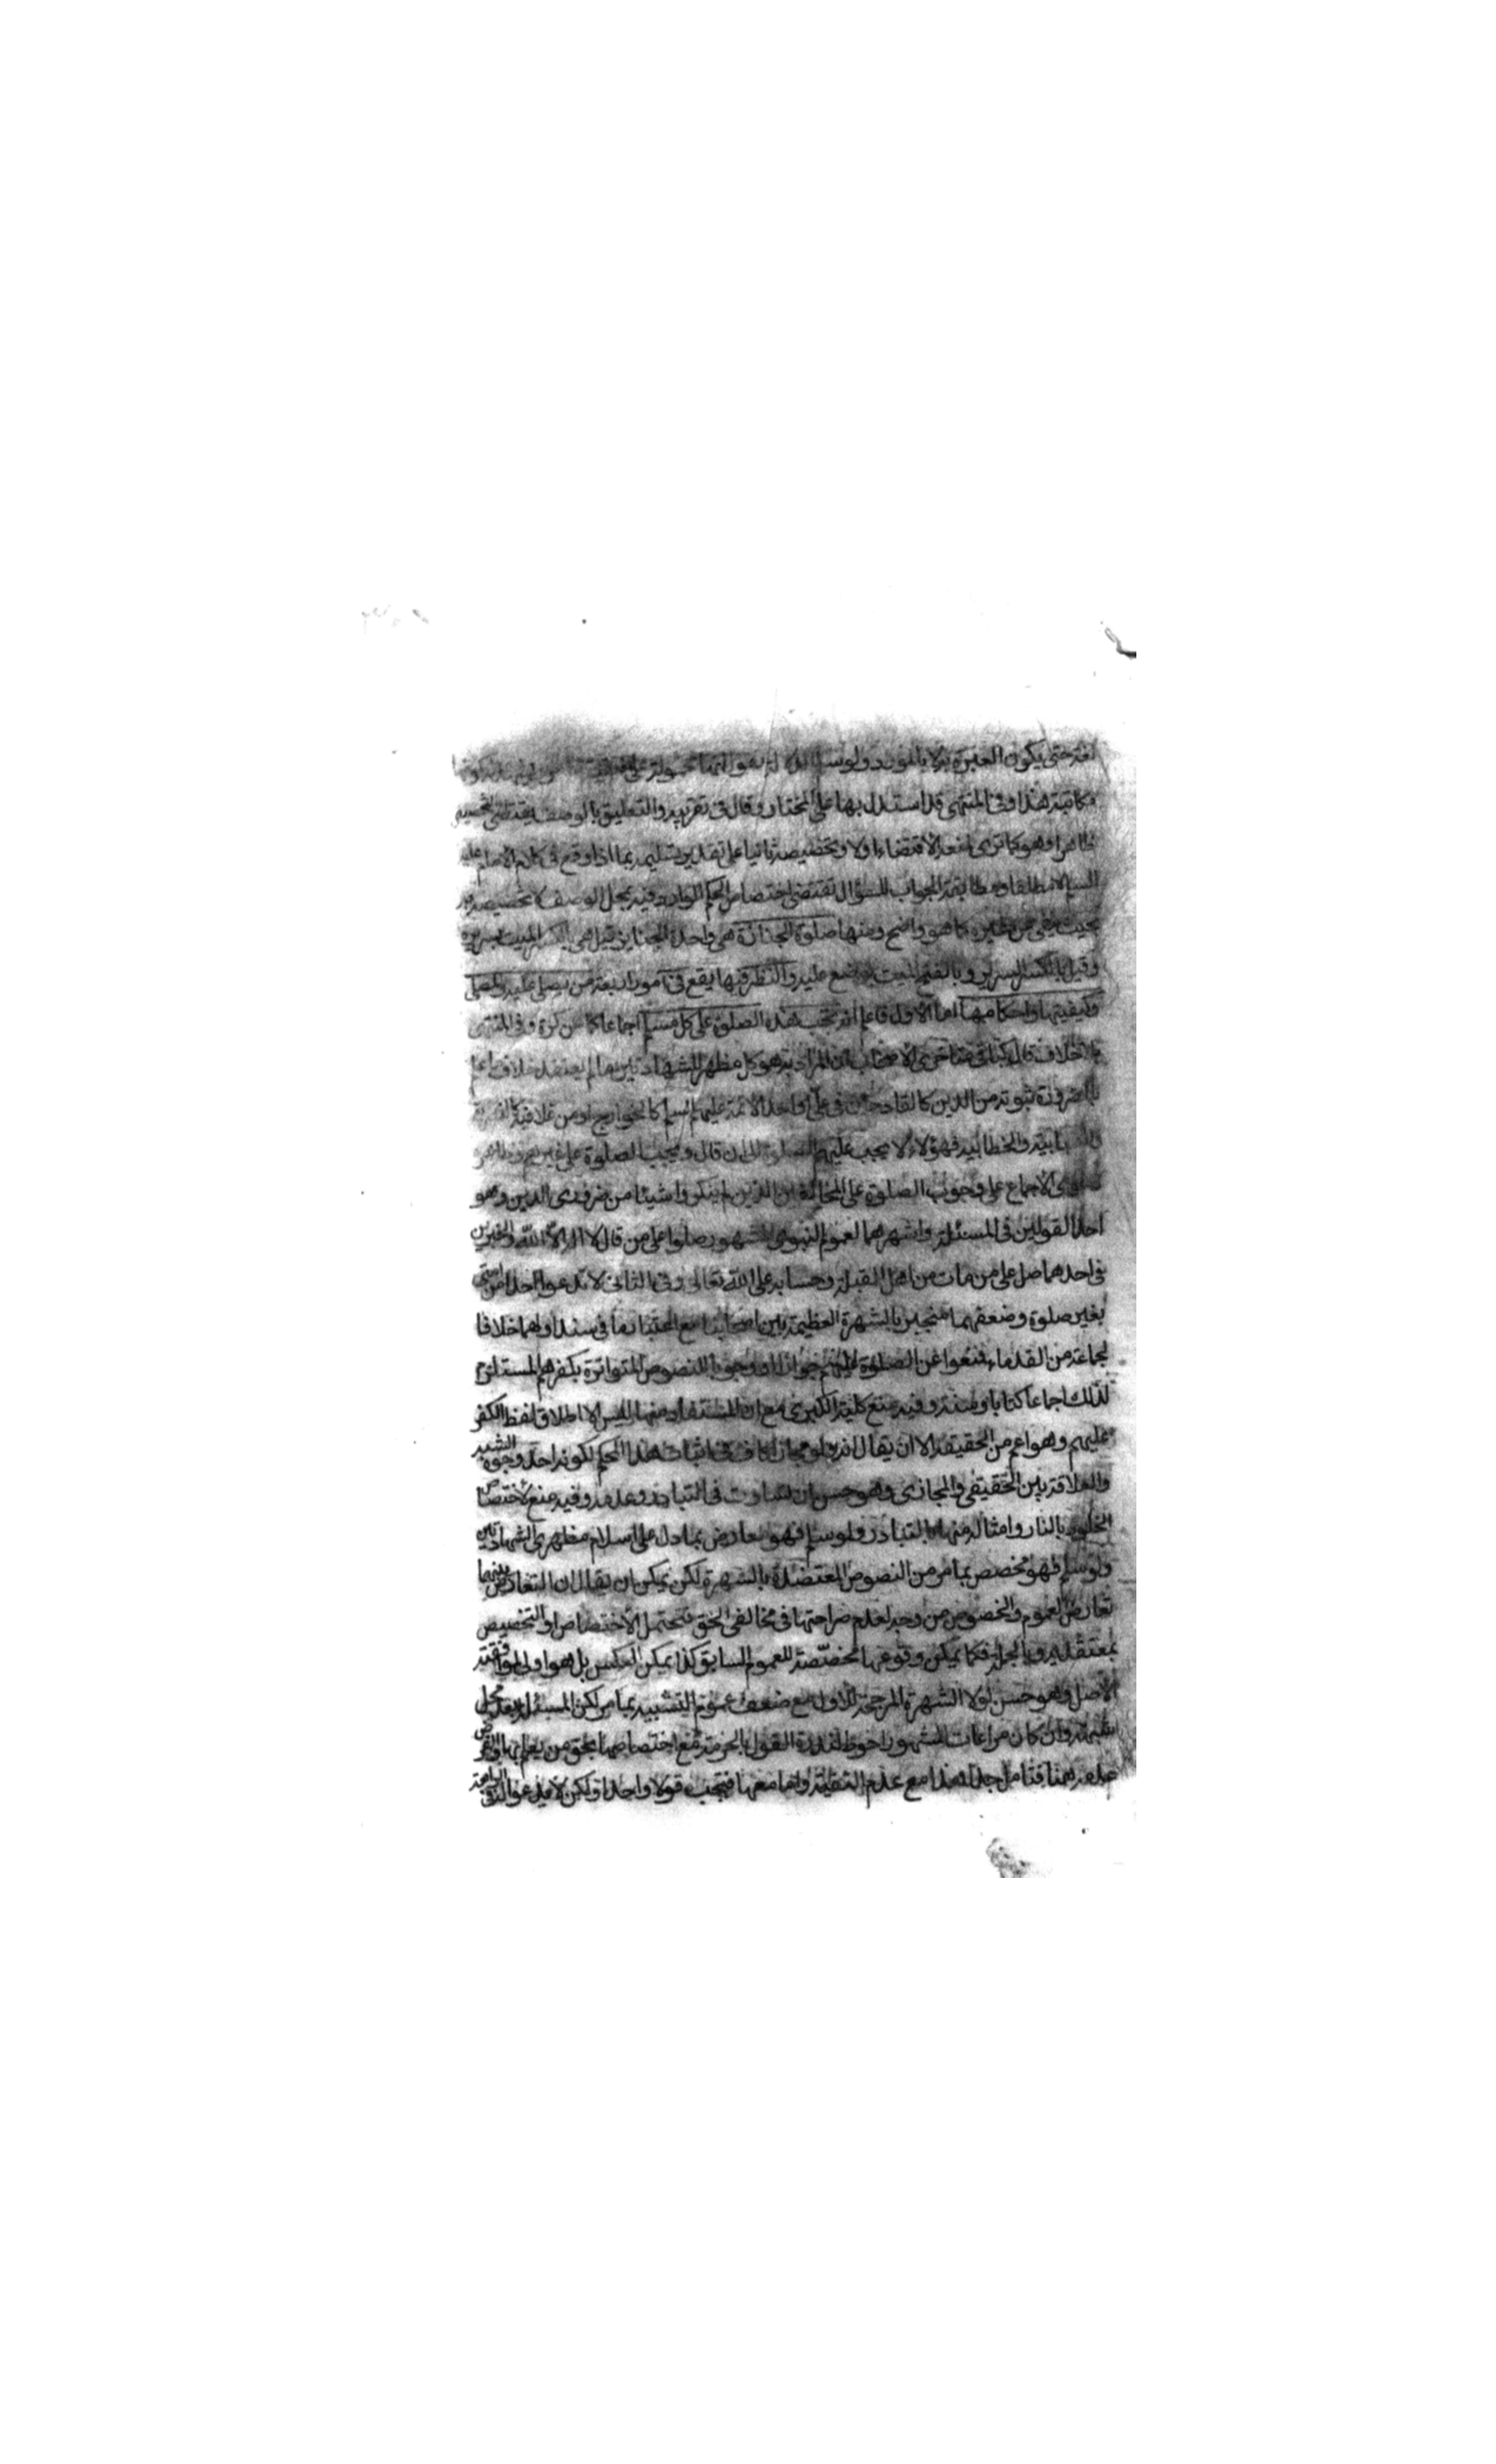 حتى يكون العبرة به لا بالمورد ولو سلم
مكاتبة هذا وفي المنتهى قد استدل بها على المختار وقال في تقريره والتعليق بالوصف يقتضي
ظاهرا وهو كما ترى لمنعه الاقتضاء اولا وتخصيصه ثانيا على تقدير تسليمه بما اذا وقع في كلام الامام عليه
السلام مطلقا ومطابقة الجواب للسؤال تقتضي اختصاص الحكم الوارد فيه بمحل الوصف لا تخصيصه به
بحيث ينفى عن غيره كما هو واضح ومنها صلوة الجنازة هي واحدة الجنايز قيل هي بالكسر الميت بسريره
وقيل بالكسر السرير وبالفتح الميت يوضع عليه والنظر فيها يقع في امور اربعة من يصلى عليه والمصلي
وكيفيتها واحكامها اما الاول فاعلم انه تجب هذه الصلوة على كل مسلم اجماعا كما عن كرة وفي المنتهى
بلا خلاف قال بناق متاخرى الاصحاب ان المراد به هو كل مظهر للشهادتين ما لم يعتقد خلاف ما علم
بالضرورة ثبوته من الدين كالقادحين في علي او احد الائمة عليهم السلم كالخوارج او من غلا فيه
والخطابية فهؤلاء لا يجب عليهم الصلوة الى ان قال ويجب الصلوة على غيرهم وظاهره
دعوى الاجماع على وجوب الصلوة على المخالفين الذين لم ينكروا شيئا من ضروري الدين وهو
احد القولين في المسئلة واشهرهما لعموم النبوي المشهور صلوا على من قال لا اله الا الله والخبرين
في احدهما صل على من مات من اهل القبلة وحسابه على الله تعالى وفي الثاني لا تدعوا احدا من امتي
بغير صلوة وضعفهما منجبر بالشهرة العظيمة بين اصحابنا مع اعتبار ما في سند اولهما خلافا
لجماعة من القدماء فمنعوا عن الصلوة عليهم جوازا او وجوبا للنصوص المتواترة بكفرهم المستلزم
لذلك اجماعا كتابا وسنة وفيه منع كلية الكبرى مع ان المستفاد منها ليس الا اطلاق لفظ الكفر
عليهم وهو اعم من الحقيقة الا ان يقال انه ولو مجازا كاف في اثبات هذا الحكم لكونه احد وجوه الشبه
والعلاقة بين الحقيقي والمجازي وهو حسن ان تساوت في التبادر وعدمه وفيه منع لاختصاص
الخلود بالنار وامثاله منها بالتبادر ولو سلم فهو معارض بما دل على اسلام مظهري الشهادتين
ولو سلم فهو مخصص بما مر من النصوص المعتضدة بالشهرة لكن يمكن ان يقال ان التعارض بينهما
تعارض العموم والخصوص من وجه لعدم صراحتها في مخالفي الحق فتحتمل الاختصاص او التخصيص
بمعتقديه وبالجملة فكما يمكن وقوعها مخصصة للعموم السابق كذا يمكن العكس بل هو اولى لموافقته
الاصل وهو حسن لولا الشهرة المرجحة للاول مع ضعف عموم التشبيه بما مر لكن المسئلة بعد محل
شبهة وان كان مراعات المشهور احوط لندرة القول بالحرمة مع اختصاصها بحق من يعلم بها والفرض
عدمه هنا فتامل جدا هذا مع عدم التقية واما معها فتجب قولا واحدا ولكن لا يدعو